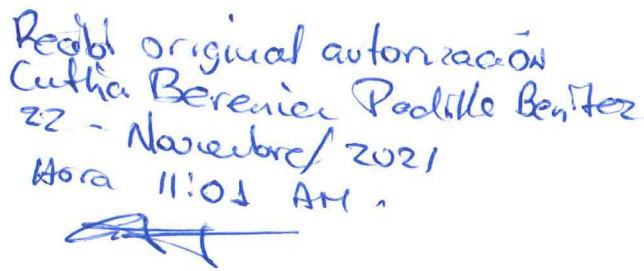 Recibí original autorización
Cuthia Berenice Padilla Benítez
22 - Noviembre/ 2021
Hora 11:01 AM.